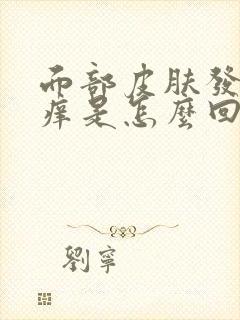 面部皮肤發
痒是怎麼回
劉寧